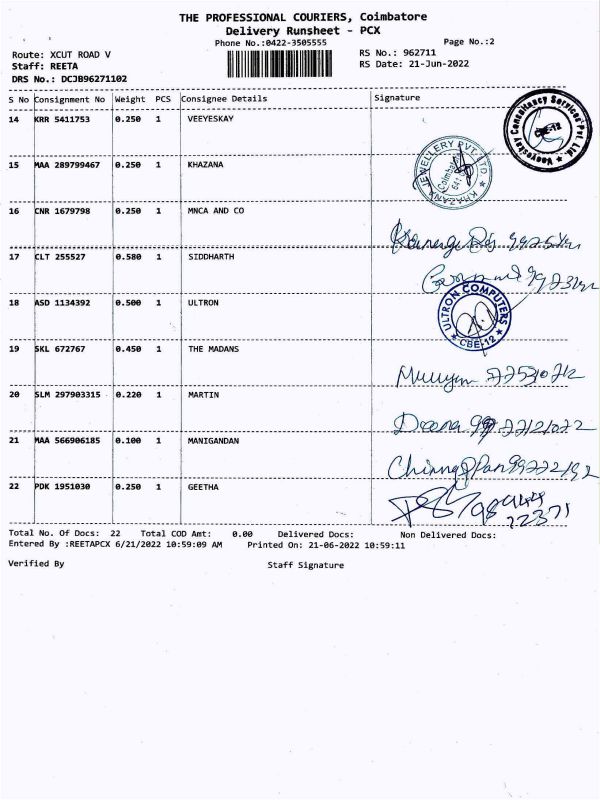 THE PROFESSIONAL COURIERS, Coimbatore
Delivery Runsheet - PCX
Phone No.:0422-3505555
Page No.:2
Route: XCUT ROAD V
RS No.: 962711
Staff: REETA
RS Date: 21-Jun-2022
DRS No.: DCJB96271102
S No Consignment No Weight PCS Consignee Details Signature
14 KRR 5411753 0.250 1 VEEYESKAY
Veeyeskay Consultancy Services Pvt. Ltd. CBE-12
15 MAA 289799467 0.250 1 KHAZANA
KHAZANA JEWELLERY PVT. LTD Coimbatore
16 CNR 1679798 0.250 1 MNCA AND CO
17 CLT 255527 0.580 1 SIDDHARTH
18 ASD 1134392 0.500 1 ULTRON
ULTRON COMPUTERS CBE-12
19 SKL 672767 0.450 1 THE MADANS
20 SLM 297903315 0.220 1 MARTIN
21 MAA 566906185 0.100 1 MANIGANDAN
22 PDK 1951030 0.250 1 GEETHA
Total No. Of Docs: 22 Total COD Amt: 0.00 Delivered Docs: Non Delivered Docs:
Entered By :REETAPCX 6/21/2022 10:59:09 AM Printed On: 21-06-2022 10:59:11
Verified By Staff Signature